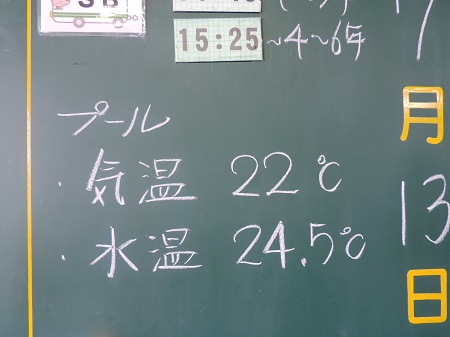 SB
15:25 ~4~6年
プール
・気温 22℃
・水温 24.5℃
7
月
13
日